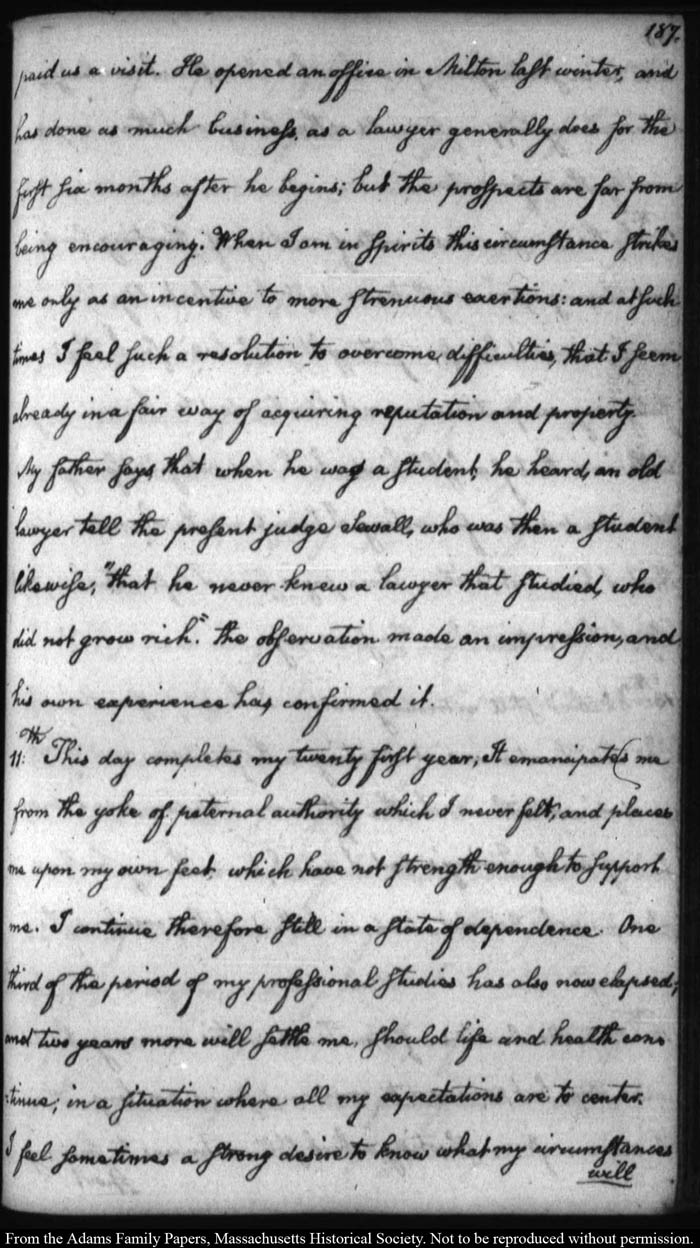 187.
paid us a visit. He opened an office in Milton last winter, and
has done as much business, as a lawyer generally does for the
first six months after he begins; but the prospects are far from
being encouraging. When I am in spirits this circumstance strikes
me only as an incentive to more strenuous exertions: and at such
times I feel such a resolution to overcome, difficulties, that I seem
already in a fair way of acquiring reputation and property.
My father says, that when he was a student, he heard, an old
lawyer tell the present judge Sewall, who was then a student
likewise, "that he never knew a lawyer that studied, who
did not grow rich." the observation made an impression, and
his own experience has, confirmed it.
11:th This day completes my twenty first year; It emancipates me
from the yoke of paternal authority which I never felt, and places
me upon my own feet, which have not strength enough to support
me. I continue therefore still in a state of dependence. One
third of the period of my professional studies has also now elapsed;
and two years more will settle me, should life and health con-
:tinue; in a situation where all my expectations are to center.
I feel sometimes a strong desire to know what my circumstances
will
From the Adams Family Papers, Massachusetts Historical Society. Not to be reproduced without permission.